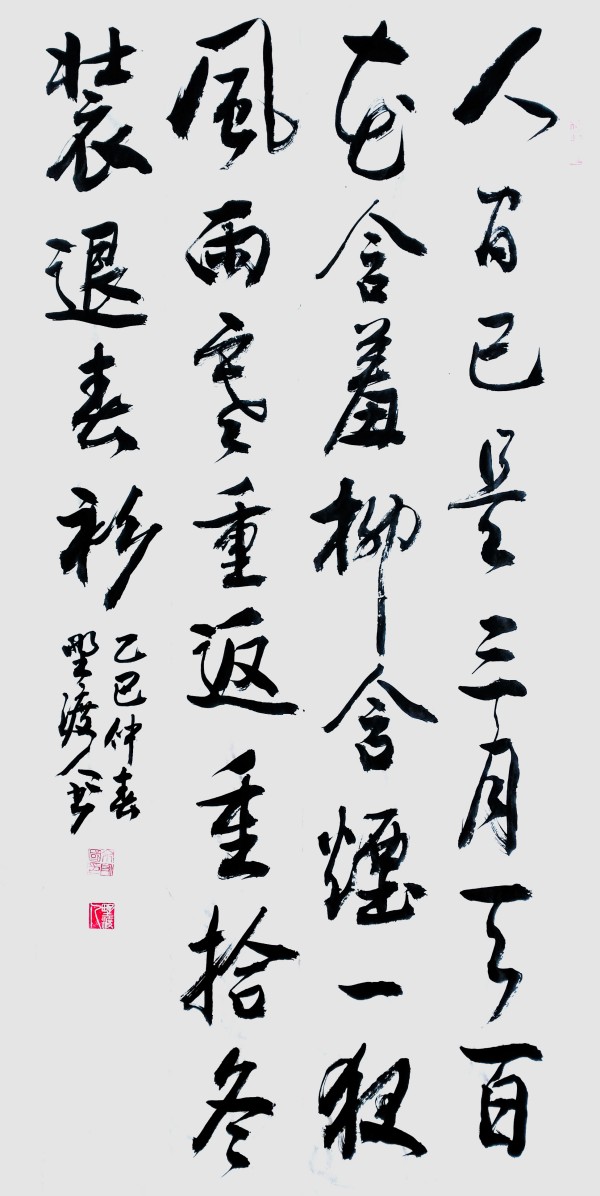 人間已是三月天百
花含羞柳含煙一夜
風雨寒重返重拾冬
裝退春衫
乙巳仲春
野渡人書